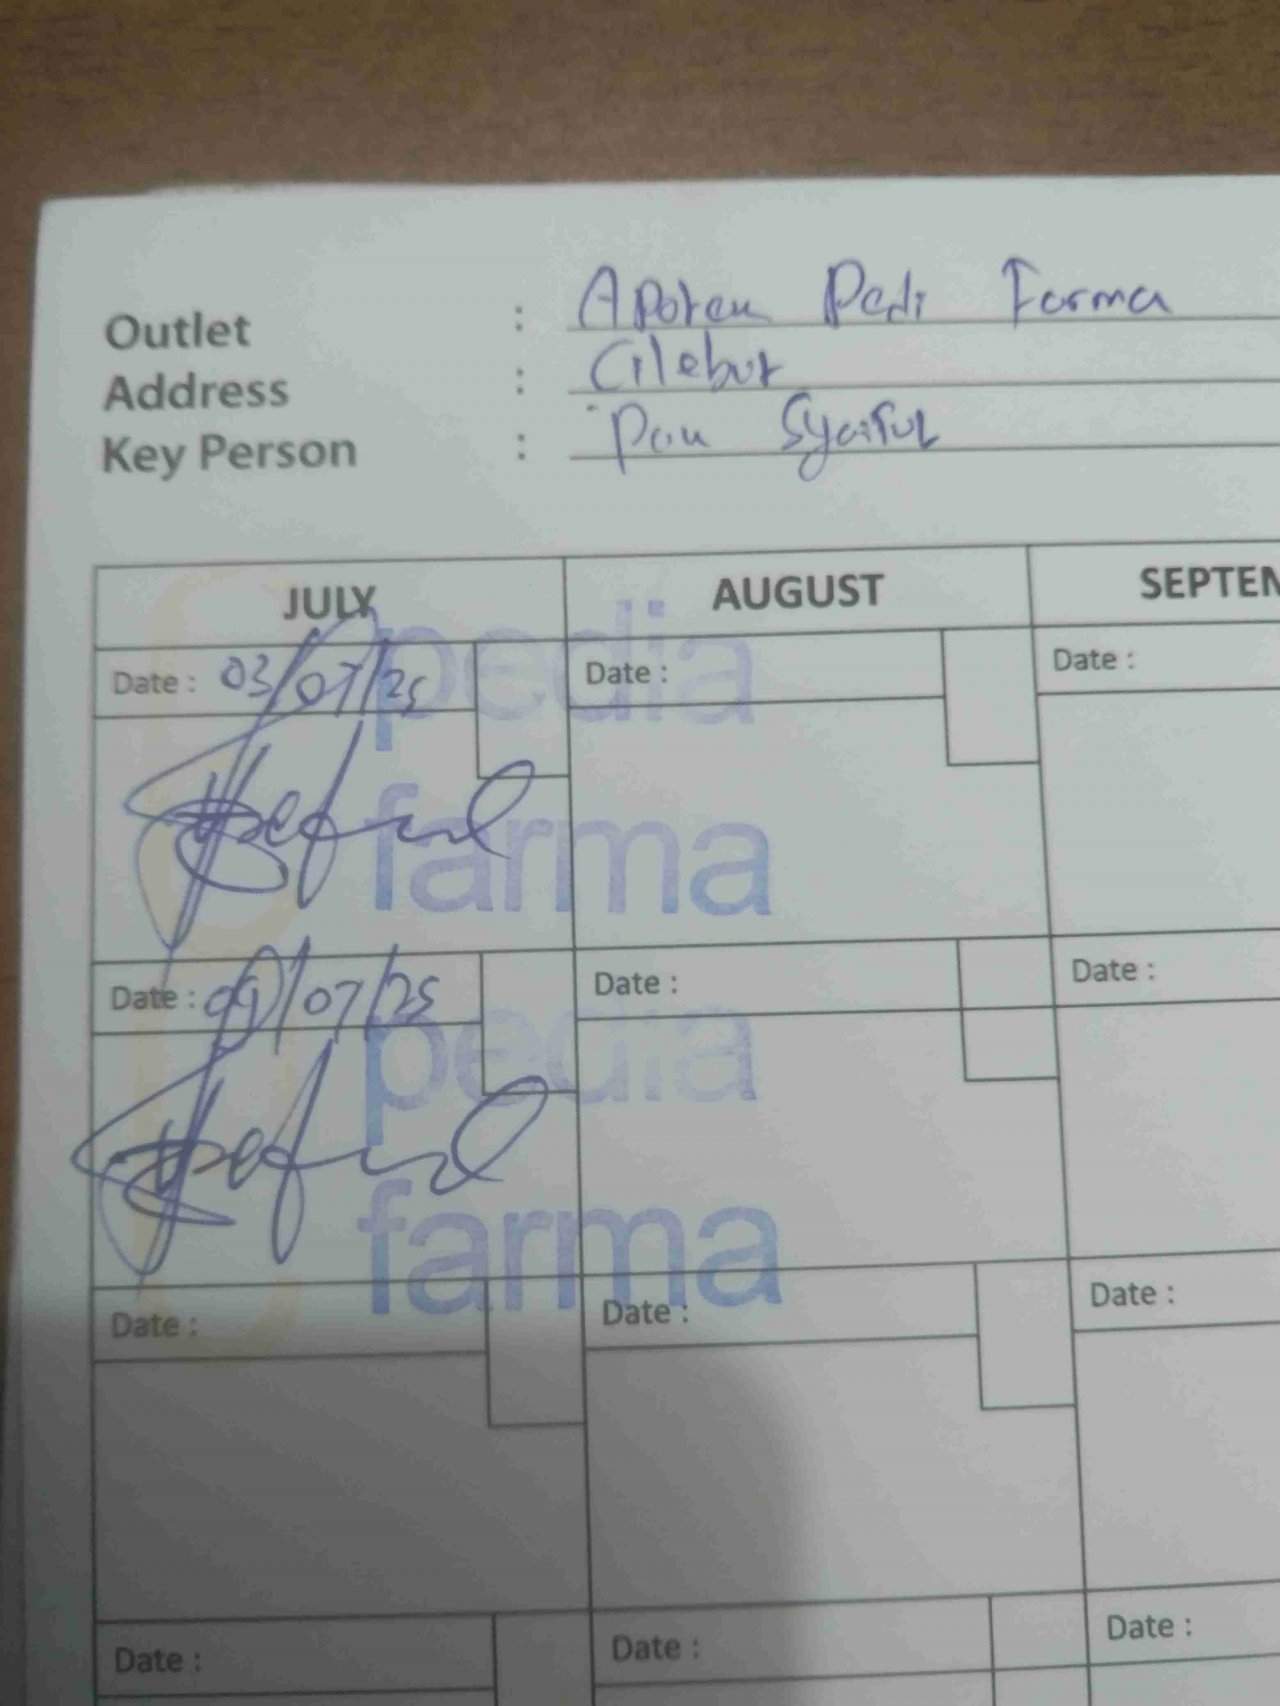 Outlet : Apotek Pedi Farma
Address : Cilebut
Key Person : Pak Syaiful
JULY AUGUST SEPTEM
Date : 03/07/25 Date : Date :
pedia
farma
Date : 09/07/25 Date : Date :
pedia
farma
Date : Date : Date :
Date : Date : Date :